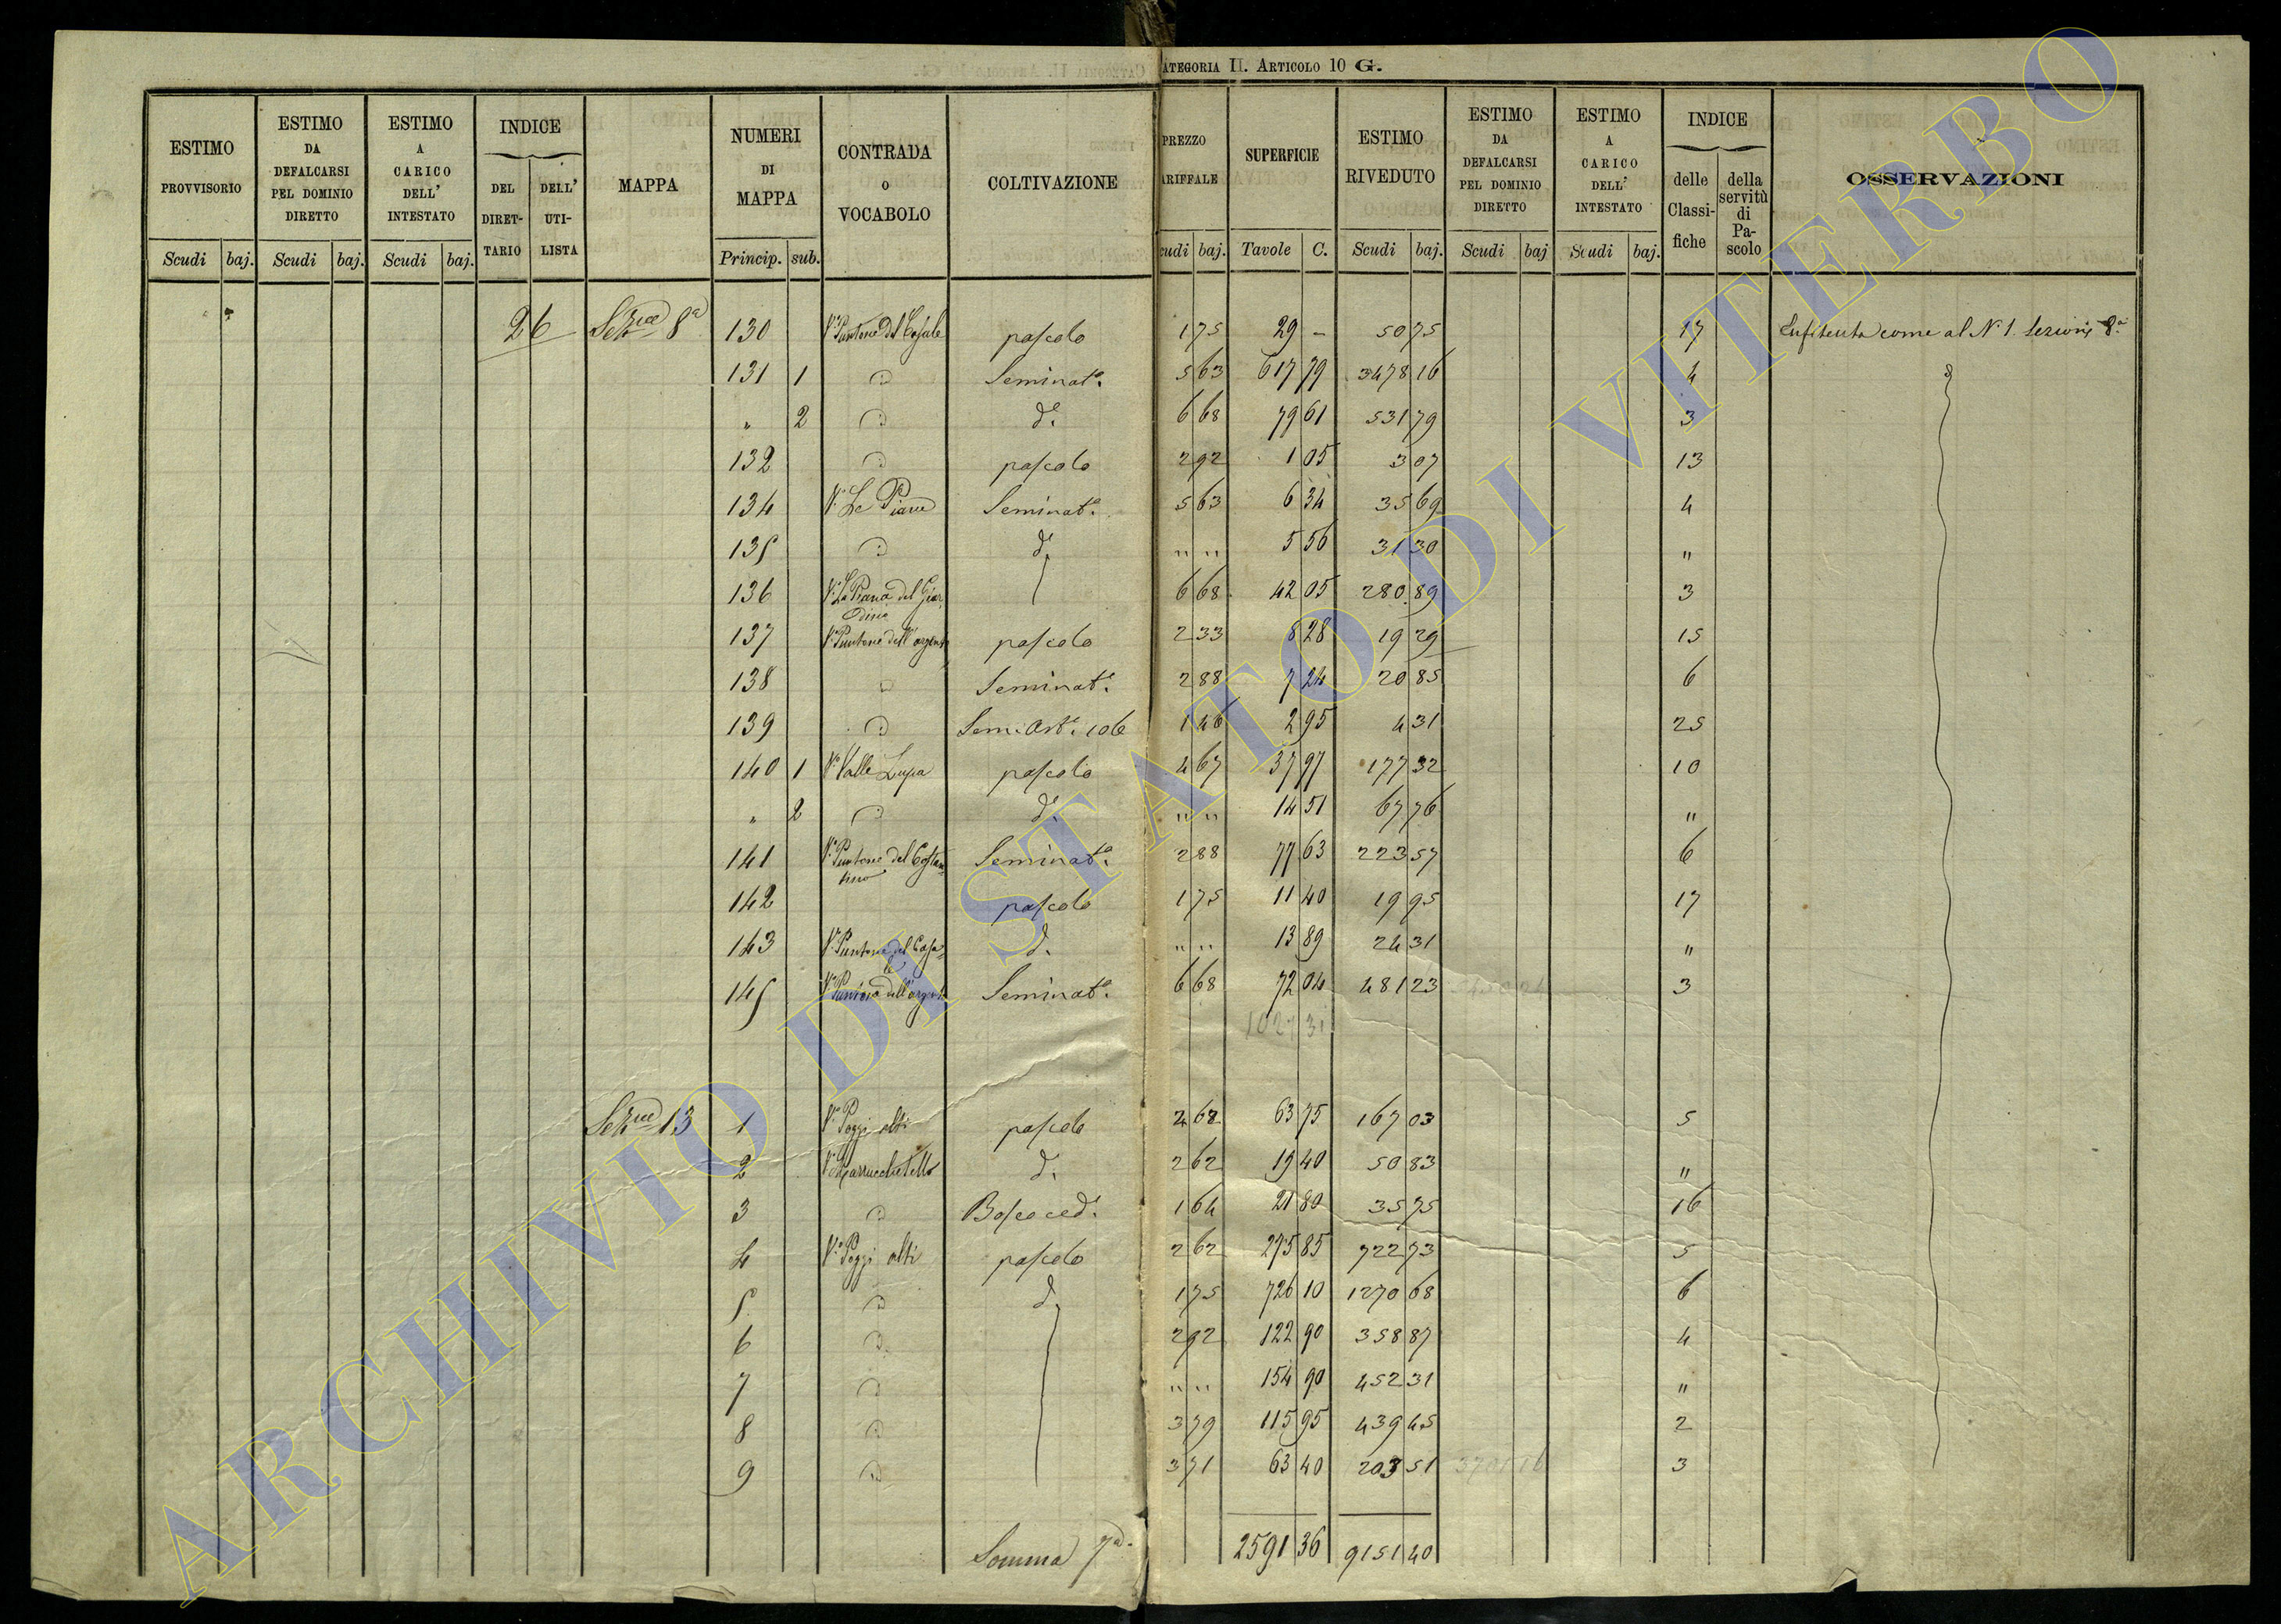 CATEGORIA II. ARTICOLO 10 G.
ESTIMO PROVVISORIO | ESTIMO DA DEFALCARSI PEL DOMINIO DIRETTO | ESTIMO A CARICO DELL' INTESTATO | INDICE | MAPPA | NUMERI DI MAPPA | CONTRADA O VOCABOLO | COLTIVAZIONE | PREZZO TARIFFALE | SUPERFICIE | ESTIMO RIVEDUTO | ESTIMO DA DEFALCARSI PEL DOMINIO DIRETTO | ESTIMO A CARICO DELL' INTESTATO | INDICE | OSSERVAZIONI
DEL DIRETTARIO | DELL' UTILISTA | delle Classifiche | della servitù di Pascolo
Scudi | baj. | Scudi | baj. | Scudi | baj. | Princip. | sub. | Scudi | baj. | Tavole | C. | Scudi | baj. | Scudi | baj | Scudi | baj.
26 Sezne 8a 130 Vo Puntone del Casale pascolo 1 75 29 – 50 75 17 Enfiteuta come al No 1. Sezione 8a
131 1 Seminato. 5 63 617 79 3478 16 4
" 2 do. 6 68 79 61 531 79 3
132 pascolo 2 92 1 05 3 07 13
134 Vo Le Piane Seminato. 5 63 6 34 35 69 4
135 do " " 5 56 31 30 "
136 Vo La Piana del Giardino 6 68 42 05 280 89 3
137 Vo Puntone dell'argento pascolo 2 33 8 28 19 29 15
138 Seminato. 2 88 7 24 20 85 6
139 Sem. Orto. 1 46 2 95 4 31 25
140 1 Vo Valle Lupa pascolo 4 67 37 97 177 32 10
" 2 do. " " 14 51 67 76 "
141 Vo Puntone del Costantino Seminato. 2 88 77 63 223 57 6
142 pascolo 1 75 11 40 19 95 17
143 Vo Puntone del Casale do. " " 13 89 24 31 "
145 Vo Puntone dell'argento Seminato. 6 68 72 04 481 23 3
1027 31
Sezne 13 1 Vo Poggi alti pascolo 2 62 63 75 167 03 5
2 do. 2 62 19 40 50 83 "
3 Bosco ced. 1 64 21 80 35 75 16
4 Vo Poggi alti pascolo 2 62 275 85 722 73 5
5 do 1 75 726 10 1270 68 6
6 2 92 122 90 358 87 4
7 " " 154 90 452 31 "
8 3 79 115 95 439 45 2
9 3 71 63 40 203 51 3701 16 3
Somma 7a. 2591 36 9151 40
ARCHIVIO DI STATO DI VITERBO